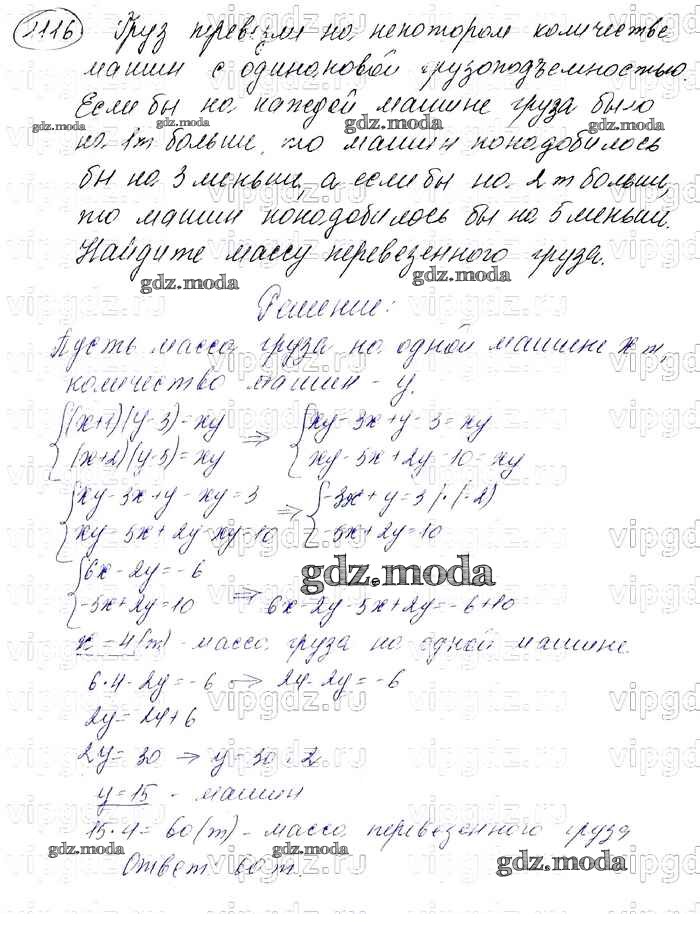 1116 Груз перевезли на некотором количестве
машин с одинаковой грузоподъемностью.
Если бы на каждой машине груза было
на 1т больше, то машин понадобилось
бы на 3 меньше, а если бы на 2 т больше,
то машин понадобилось бы на 5 меньше.
Найдите массу перевезенного груза.
Решение:
Пусть масса груза на одной машине x т,
количество машин - y.
{(x+1)(y-3)=xy => {xy-3x+y-3=xy
(x+2)(y-5)=xy xy-5x+2y-10=xy
{xy-3x+y-xy=3 => {-3x+y=3 |·(-2)
xy-5x+2y-xy=10 -5x+2y=10
{6x-2y=-6
-5x+2y=10 => 6x-2y-5x+2y=-6+10
x=4(т) - масса груза на одной машине
6·4-2y=-6 -> 24-2y=-6
2y=24+6
2y=30 -> y=30:2
y=15 - машин
15·4=60(т) - масса перевезенного груза
Ответ 60т.
gdz.moda
gdz.moda
gdz.moda
gdz.moda
gdz.moda
gdz.moda
gdz.moda
gdz.moda
gdz.moda
vipgdz.ru